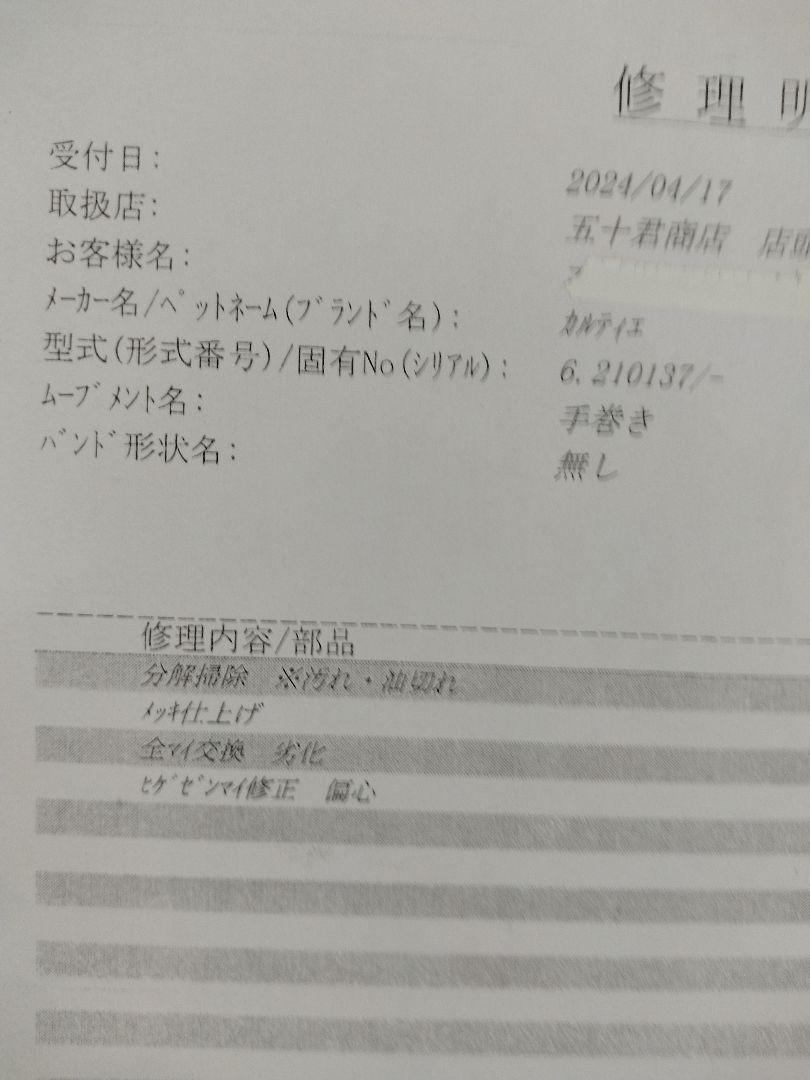 修理明
受付日:
2024/04/17
取扱店:
五十君商店 店頭
お客様名:
ﾒｰｶｰ名/ﾍﾟｯﾄﾈｰﾑ(ﾌﾞﾗﾝﾄﾞ名):
ｶﾙﾃｨｴ
型式(形式番号)/固有No(ｼﾘｱﾙ):
6.210137/-
ﾑｰﾌﾞﾒﾝﾄ名:
手巻き
ﾊﾞﾝﾄﾞ形状名:
無し
修理内容/部品
分解掃除 ※汚れ・油切れ
ﾒｯｷ仕上げ
全ﾏｲ交換 劣化
ﾋｹﾞｾﾞﾝﾏｲ修正 偏心